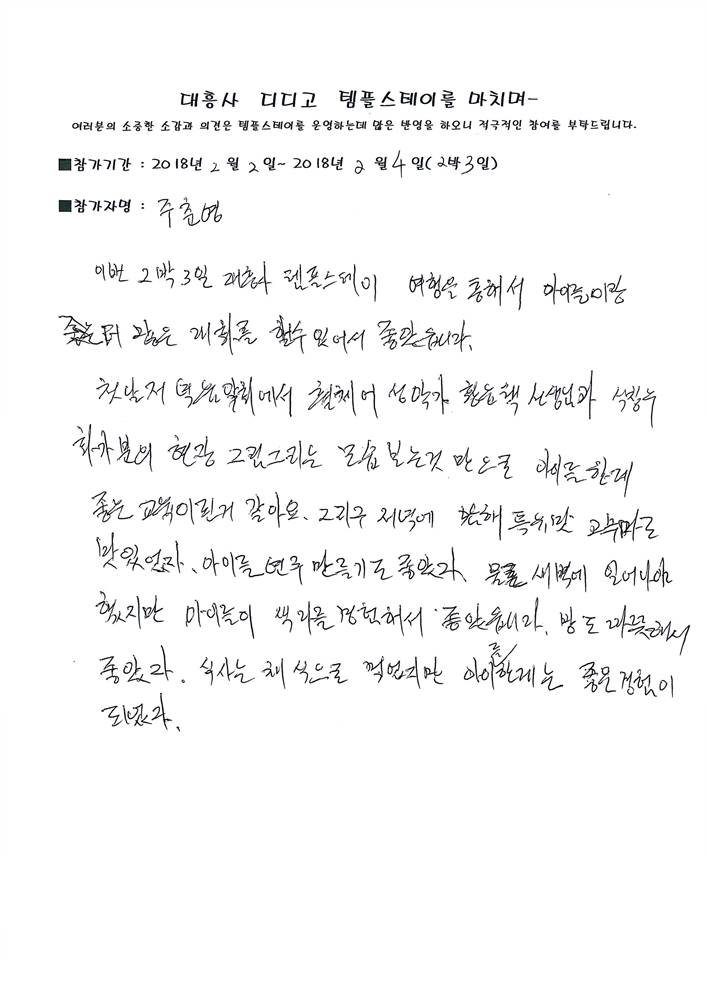 대흥사 디디고 템플스테이를 마치며-
여러분의 소중한 소감과 의견은 템플스테이를 운영하는데 많은 반영을 하오니 적극적인 참여를 부탁드립니다.
■참가기간 : 2018년 2월 2일~ 2018년 2월 4일(2박3일)
■참가자명 : 주춘영
이번 2박 3일 대흥사 템플스테이 여행을 통해서 아이들이랑
같은 대화를 할수 있어서 좋았읍니다.
첫날저녁 음악회에서 성악가 선생님과 석창우
화가분의 현장 그림그리는 모습 보는것 만으로 아이들한테
좋은 교육이된거 같아요. 그리구 저녁에 해남 고구마도
맛있었다. 아이들 연주 만들기도 좋았다. 새벽에 일어나야
했지만 아이들이 경험해서 좋았읍니다. 방도 따뜻해서
좋았다. 식사는 채식으로 먹었지만 아이들한테는 좋은 경험이
되었다.